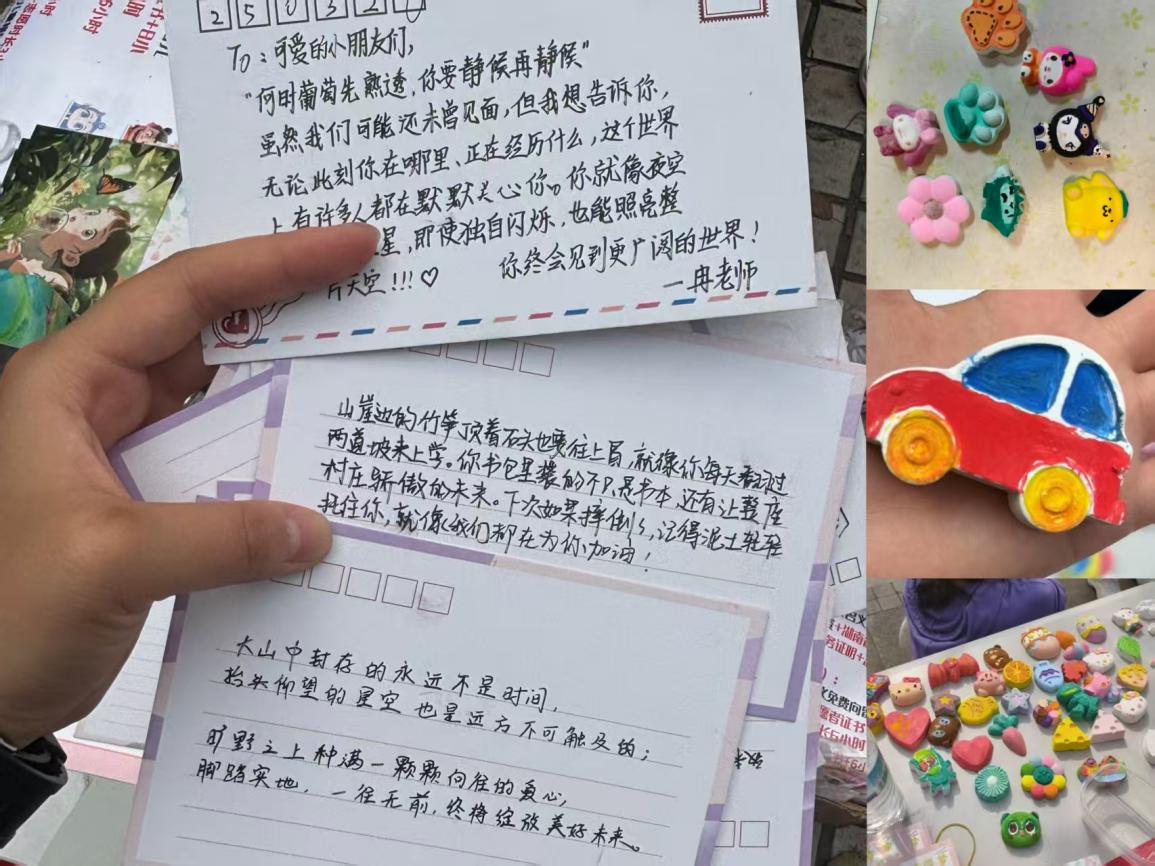 250320
To：可爱的小朋友们，
"何时葡萄先熟透，你要静候再静候"
虽然我们可能还未曾见面，但我想告诉你，
无论此刻你在哪里、正在经历什么，这个世界
上有许多人都在默默关心你。你就像夜空
星，即使独自闪烁，也能照亮整
片天空!!!♡
你终会见到更广阔的世界！
—冉老师
山崖边的竹笋顶着石头也要往上冒，就像你每天翻过
两道坡来上学。你书包里装的不只是书本，还有让整座
村庄骄傲的未来。下次如果摔倒了，记得泥土轻轻
托住你，就像我们都在为你加油！
大山中封存的永远不是时间，
抬头仰望的星空也是远方不可触及的；
旷野之上种满一颗颗向往的爱心，
脚踏实地，一往无前，终将绽放美好未来。
小时
+湖南
务证明+
免费向
愿者证书
长6小时